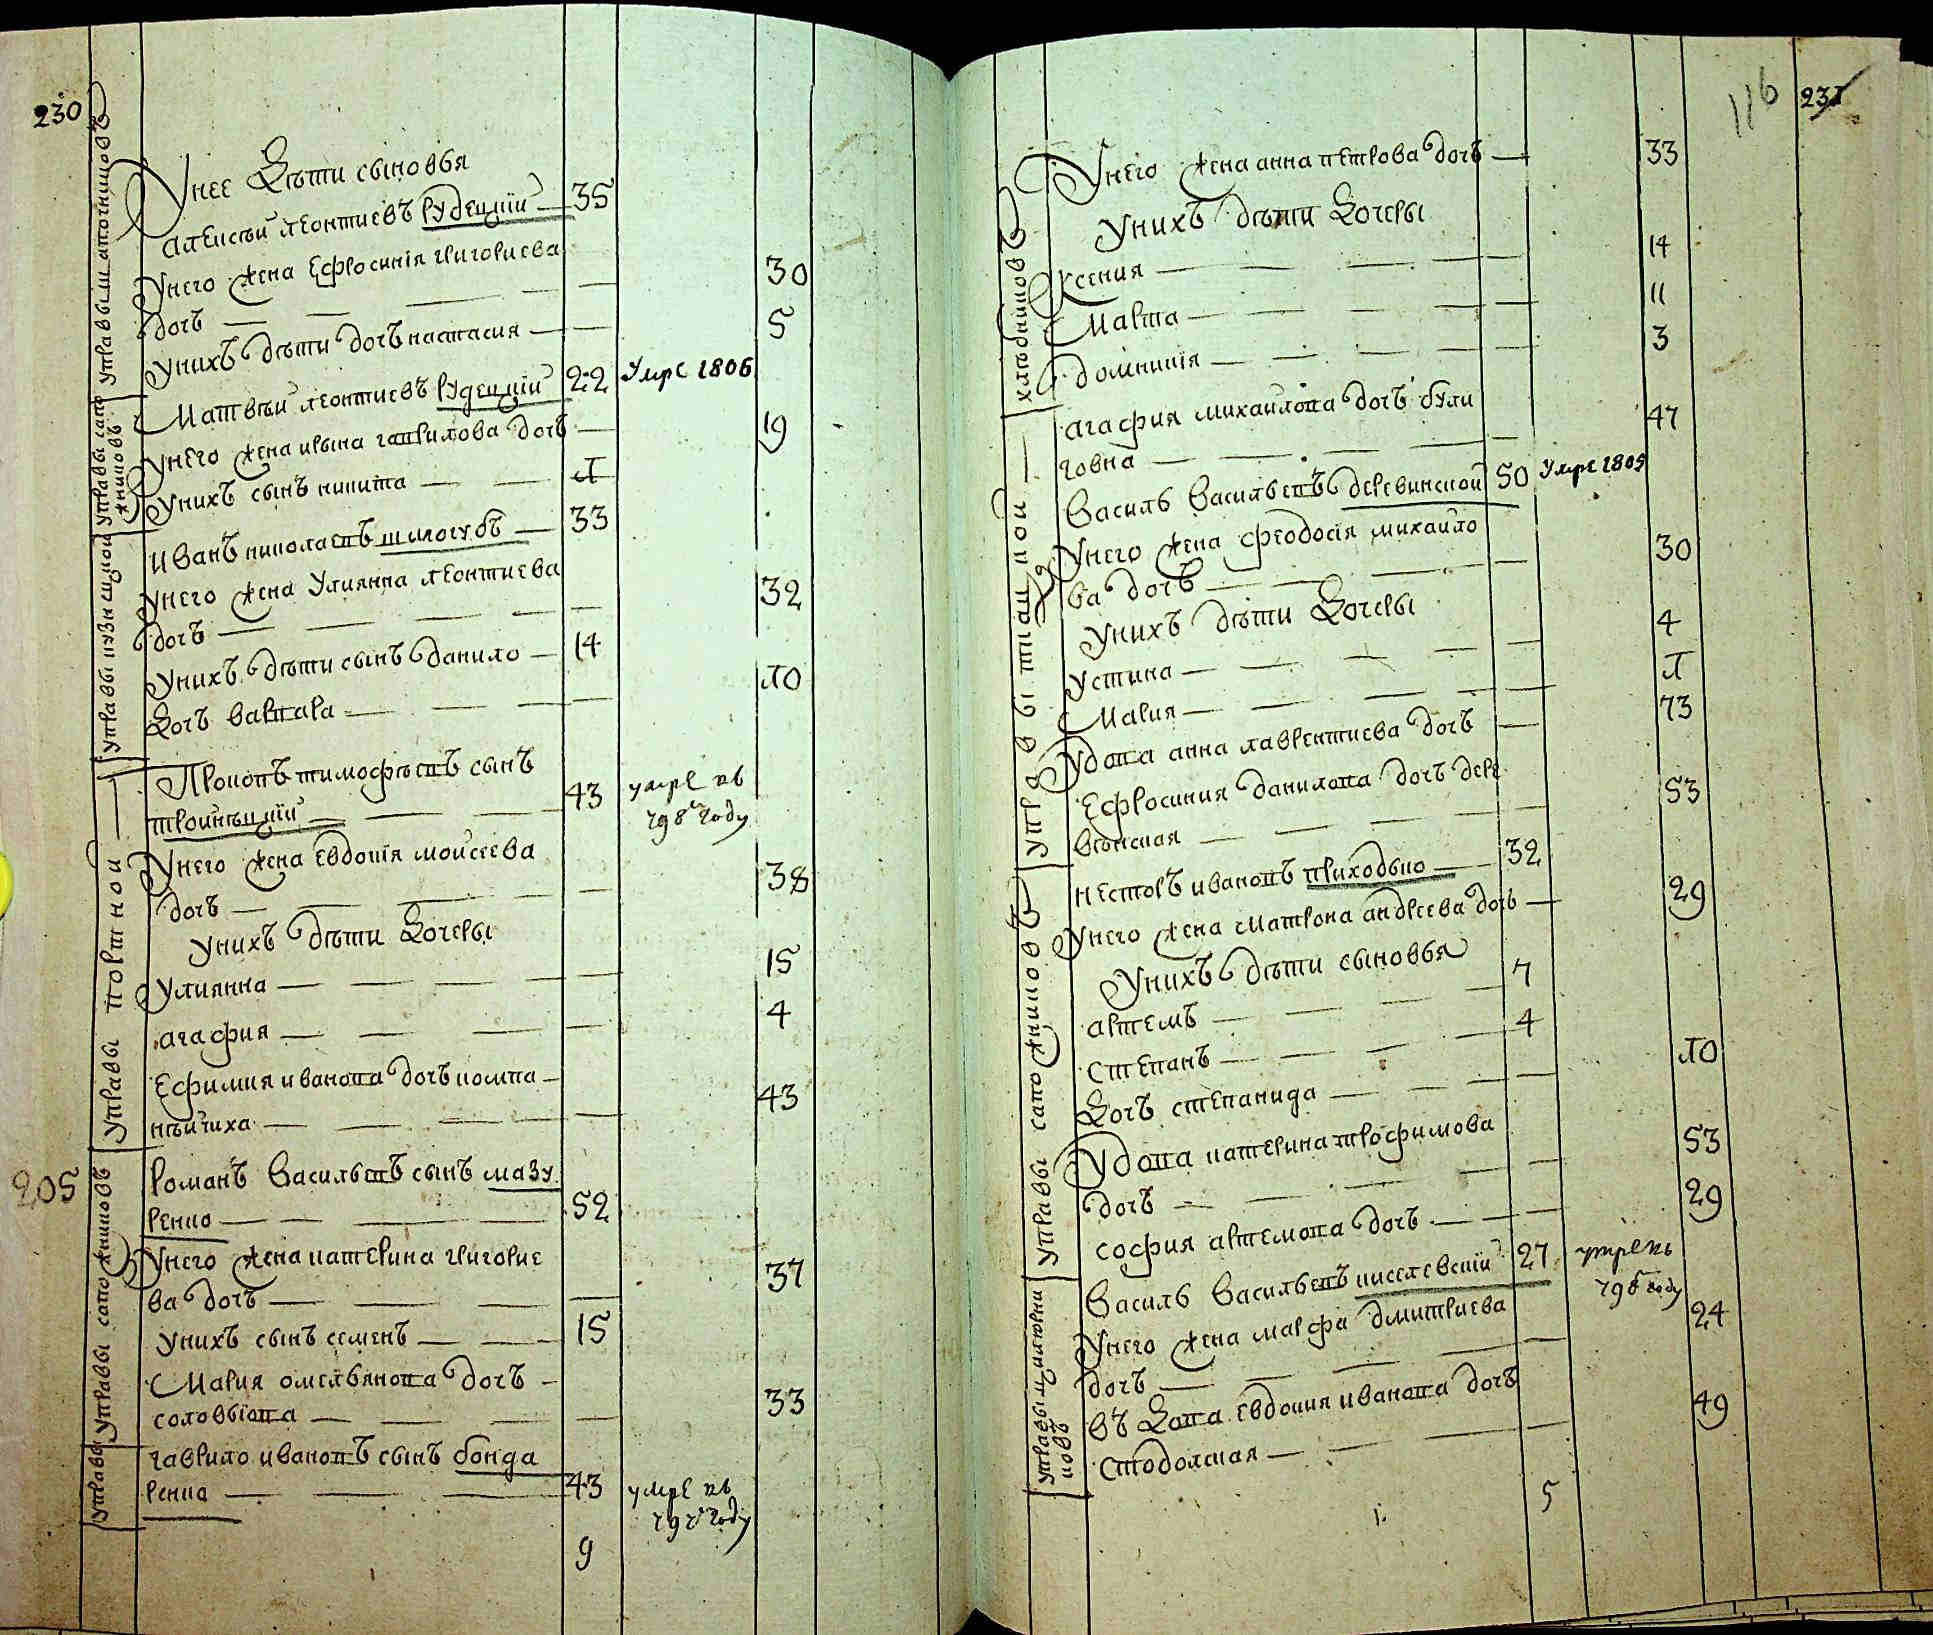 230
Унее Дѣти сыновья
Алексѣй леонтиевъ Рудецкїй — 35
Унего жена Есфросинїя григориева
дочъ — 30
Унихъ дѣти дочъ настасия — 5
Матвѣй леонтиевъ Рудецкїй 22 Умре 1806
Унего жена ирына гаврилова дочъ — 19
Унихъ сынъ никита — 1
Иванъ николаевъ шилогубъ — 33
Унего жена Улиянна леонтиева
дочъ — 32
Унихъ дѣти сынъ данило — 14
Дочъ варвара — 10
управы портной
Прокопъ тимофѣевъ сынъ
троинѣцкїй — 43 умре въ
798м году
Унего жена Евдокїя мойсеева
дочъ — 38
Унихъ дѣти Дочеры
Улиянна — 15
агафия — 4
Есфимия иванова дочъ компа-
нѣйчиха — 43
205
управы сапожниковъ
Романъ Васильевъ сынъ мазу
ренко — 52
Унего жена катерина григорие
ва дочъ — 37
Унихъ сынъ семенъ — 15
Мария омельянова дочъ —
соловьiова — 33
управы
гаврило ивановъ сынъ бонда
ренко — 43 умре въ
году
9
116 231
хлѣбниковъ
Унего жена анна петрова дочъ — 33
Унихъ дѣти Дочеры
Ксения — 14
Марта — 11
домникїя — 3
агафия михайлова дочъ були
говна — 47
Василь Васильевъ деревинской 50 Умре 1805
Унего жена феодосїя михайло
ва дочъ — 30
Унихъ дѣти Дочеры
Устина — 4
Мария — 1
Удова анна лаврентиева дочъ — 73
Есфросиния данилова дочъ дере
вѣнская — 53
управы сапожниковъ
Несторъ ивановъ приходько — 32
Унего жена матрона андреева дочъ — 29
Унихъ дѣти сыновья
артемъ — 7
степанъ — 4
Дочъ степанида — 10
Удова катерина трофимова
дочъ — 53
софия артемова дочъ — 29
Василь Васильевъ киселевскїй 27 умре въ
798 году
Унего жена марфа дмитриева
дочъ — 24
въДова евдокия иванова дочъ
стодолская — 49
5